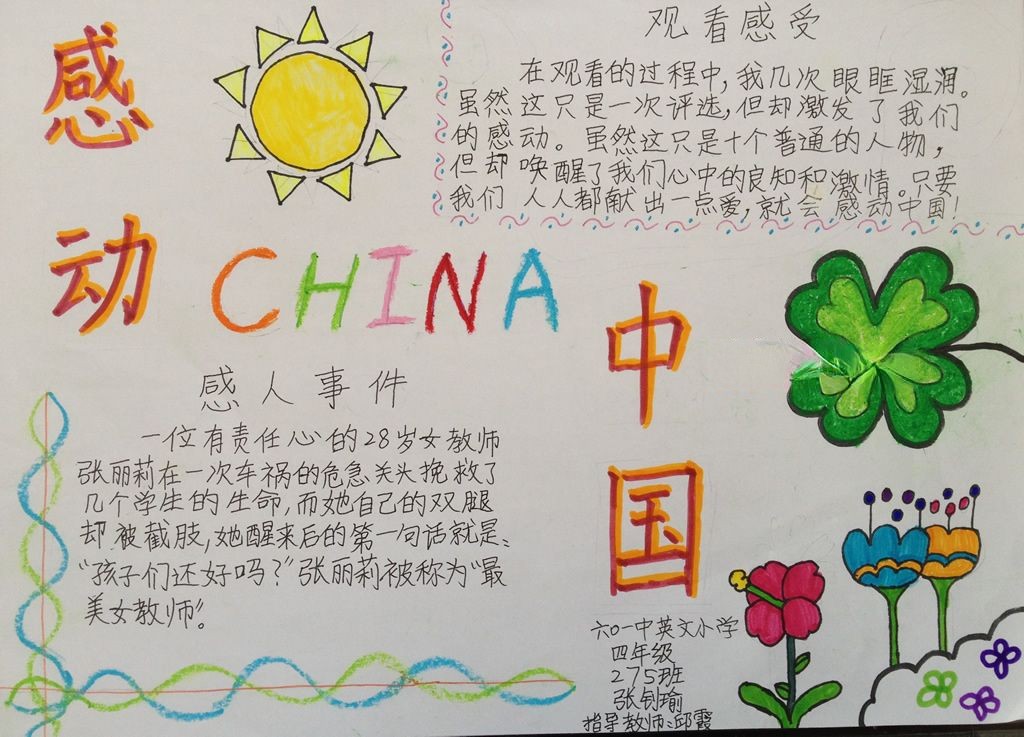 感
动
CHINA
中
国
观看感受
在观看的过程中,我几次眼眶湿润。
虽然这只是一次评选,但却激发了我们
的感动。虽然这只是十个普通的人物,
但却唤醒了我们心中的良知和激情。只要
我们人人都献出一点爱,就会感动中国!
感人事件
一位有责任心的28岁女教师
张丽莉在一次车祸的危急关头挽救了
几个学生的生命,而她自己的双腿
却被截肢,她醒来后的第一句话就是:
“孩子们还好吗?”张丽莉被称为“最
美女教师”。
六〇一中英文小学
四年级
275班
张钊瑜
指导教师:邱霞